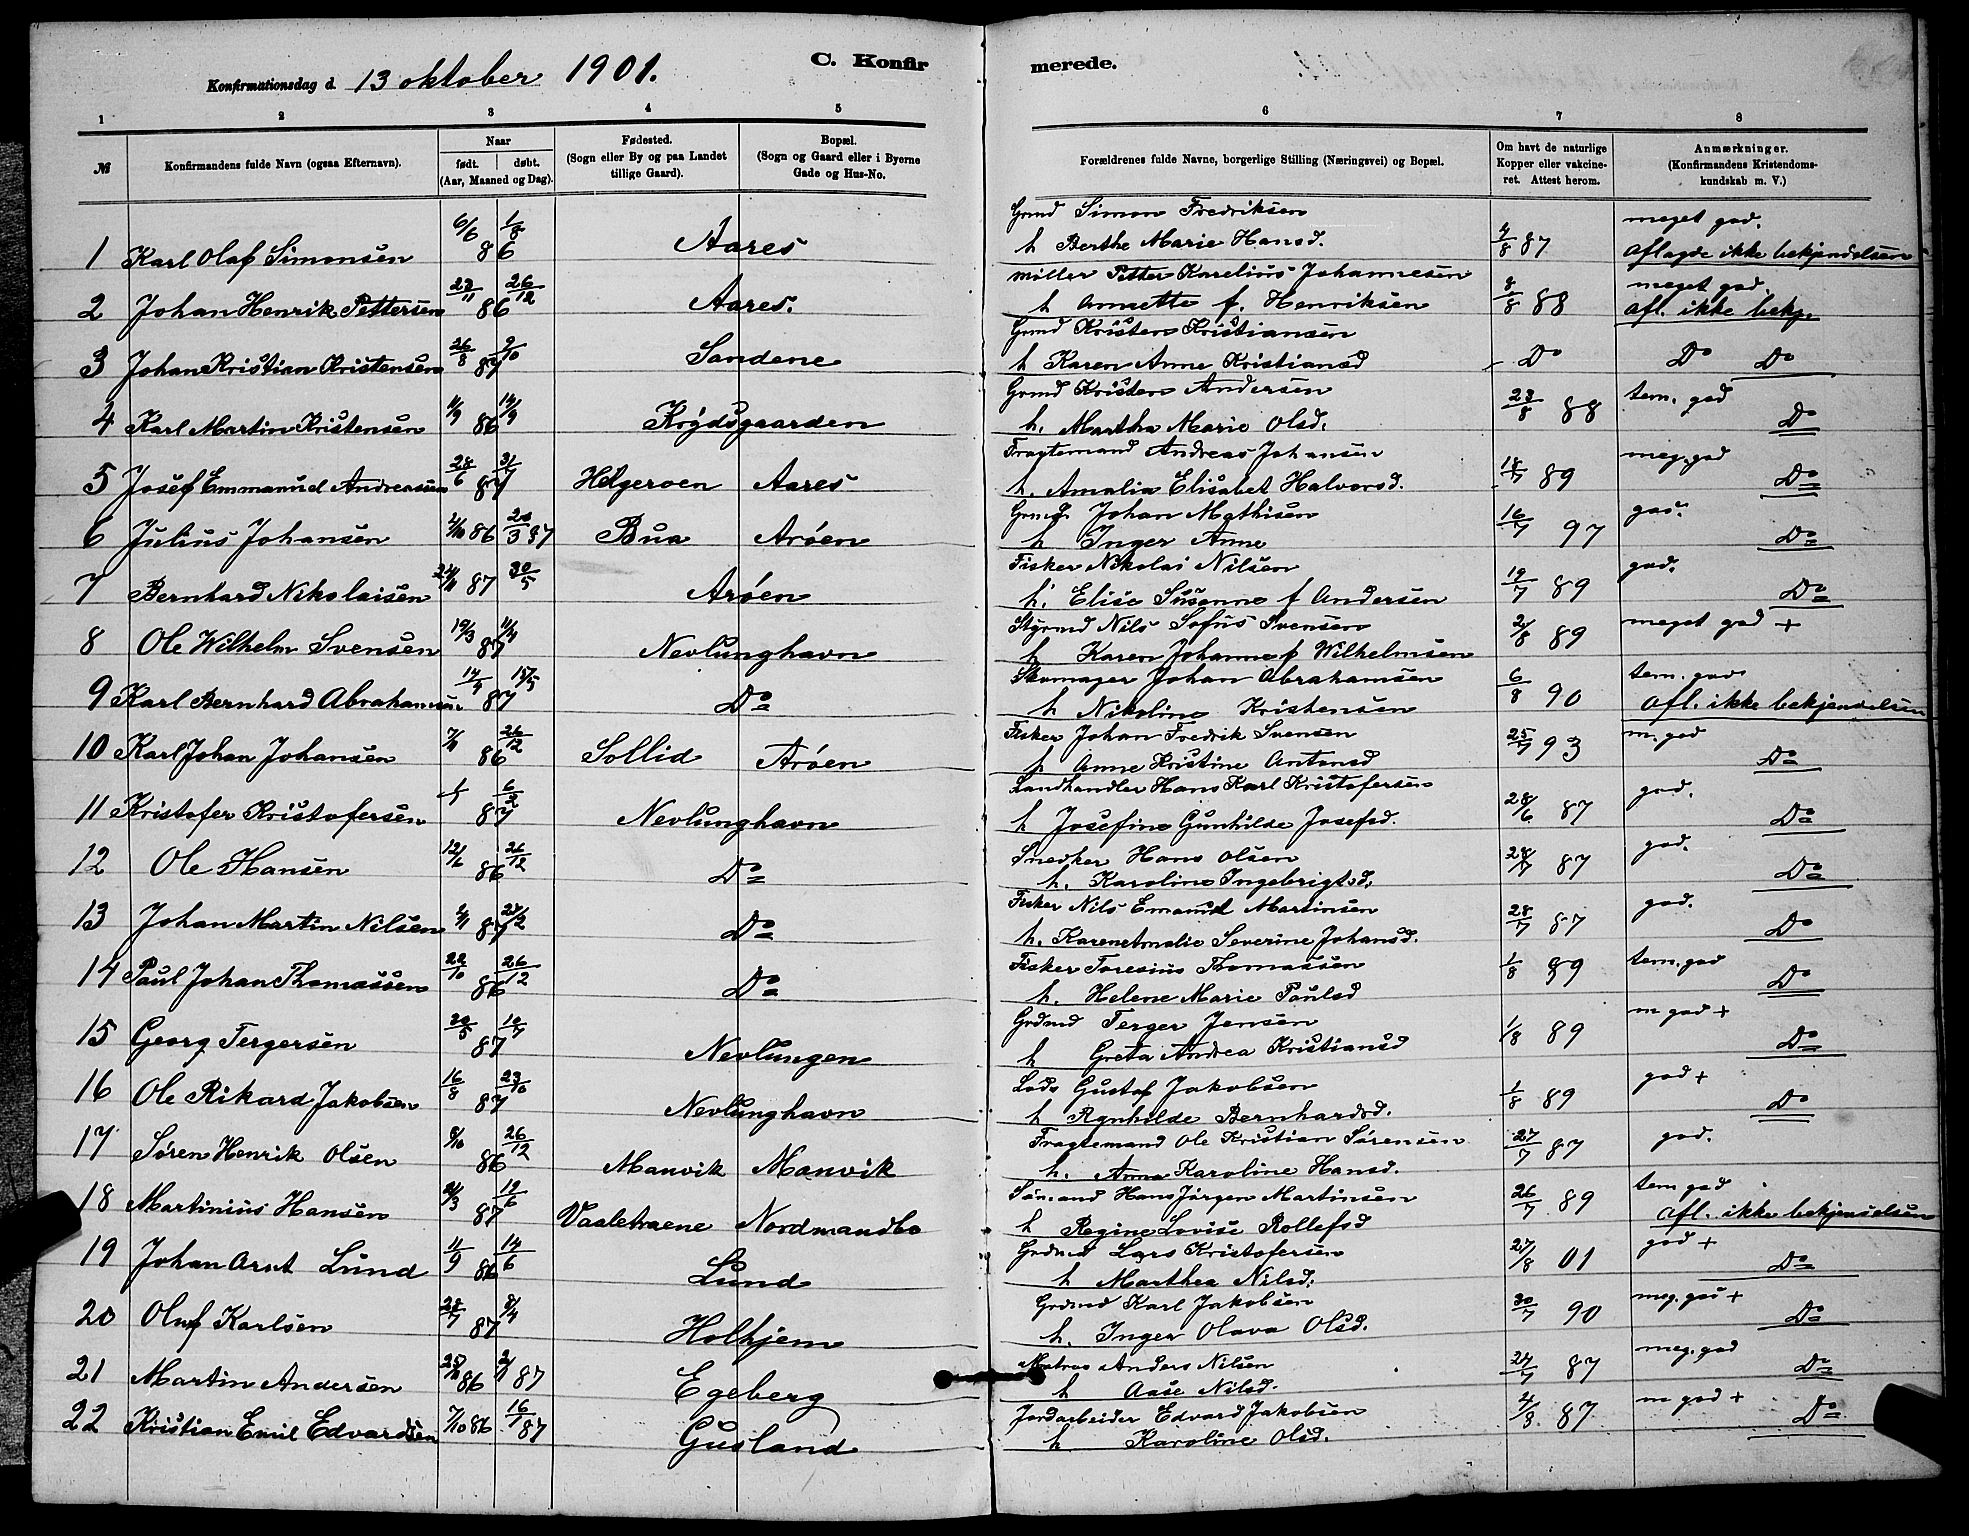 Konfirmationsdag d. 13 oktober 1901. C. Konfirmerede.
1 2 3 4 5 6 7 8
№ Konfirmandens fulde Navn (ogsaa Efternavn). Naar født. døbt. (Aar, Maaned og Dag). Fødested. (Sogn eller By og paa Landet tillige Gaard). Bopæl. (Sogn og Gaard eller i Byerne Gade og Hus-No. Forældrenes fulde Navne, borgerlige Stilling (Næringsvei) og Bopæl. Om havt de naturlige Kopper eller vakcineret. Attest herom. Anmærkninger. (Konfirmandens Kristendomskundskab m. V.)
Grmd Simon Fredriksen meget god.
1 Karl Olaf Simonsen 6/6 86 1/8 Aares h Berthe Marie Hansd. 4/8 87 Aflagde ikke bekjendelsen
Møller Petter Karelius Johannesen meget god.
2 Johan Henrik Pettersen 23/11 86 26/12 Aares. h Annette f. Henriksen 8/8 88 Afl. ikke bekj.
Grmd Kristen Kristiansen
3 Johan Kristian Kristensen 26/8 87 2/10 Sandene h Karen Anne Kristiansd Do Do Do
Grmd Kristen Andersen tem. god
4 Karl Martin Kristensen 11/9 86 14/9 Krydsgaarden h. Martha Marie Olsd. 23/8 88 Do
Fragtemand Andreas Johansen meg. god
5 Josef Emmanuel Andreasen 28/6 87 31/7 Helgeroen Aares h. Amalia Elisabet Halvorsd. 18/7 89 Do
Grmd. Johan Mathisen god.
6 Julius Johansen 86 20/3 87 Bua Arøen h Inger Anne 16/7 97 Do
Fisker Nikolai Nilsen god.
7 Bernhard Nikolaisen 87 30/5 Arøen h. Elise Susanne f Andersen 19/7 89 Do
Styrmd Nils Sofus Svensen meget god +
8 Ole Wilhelm Svensen 19/3 87 11/4 Nevlunghavn h Karen Johanne f Wilhelmsen 2/8 89
Skomager Johan Abrahamsen tem. god
9 Karl Bernhard Abrahamsen 14/4 87 15/5 Do h Nikoline Kristensen 6/8 90 Afl. ikke bekjendelsen
Fisker Johan Fredrik Svensen m. god
10 Karl Johan Johansen 7/11 86 26/12 Sollid Arøen h Anne Kristine Antonsd 25/7 93 Do
Landhandler Hans Karl Kristofersen god.
11 Kristofer Kristofersen 87 6/2 Nevlunghavn h Josefine Gunhilde Josefsd. 28/6 87 Do
Snedker Hans Olsen god.
12 Ole Hansen 12/6 86 26/12 Do h. Karoline Ingebrigtsd. 28/7 87 Do
Fisker Nils Emanuel Martinsen god.
13 Johan Martin Nilsen 2/1 87 27/2 Do h. Karenetmalie Severine Johansd. 28/7 87 Do
Fisker Toresius Thomassen tem. god
14 Paul Johan Thomassen 22/10 86 26/12 Do h. Helene Marie Paulsd 1/8 89 Do
Grdmd Terger Jensen m god +
15 Georg Tergersen 20/5 87 10/7 Nevlungen h Greta Andrea Kristiansd 1/8 89 Do
Lods Gustaf Jakobsen god +
16 Ole Rikard Jakobsen 16/8 87 23/10 Nevlunghavn h Agnhilde Bernhardsd. 1/8 89 Do
Fragtemand Ole Kristian Sørensen god.
17 Søren Henrik Olsen 8/10 86 26/12 Manvik Manvik h. Anna Karoline Hansd. 27/7 87
Sømand Hans Jørgen Martinsen tem god
18 Martinius Hansen 21/3 87 19/6 Vaaletraene Nordmandbo h Regine Lovise Rollefsd 26/7 89 Afl. ikke bekjendelsen
Grdmd Lars Kristofersen god +
19 Johan Arnt Lund 11/9 86 14/6 Lund h Marthea Nilsd. 27/8 01 Do
Grdmd Karl Jakobsen meg. god +
20 Oluf Karlsen 28/7 87 Holtjem h. Inger Olava Olsd. 30/7 90 Do
Matros Anders Nilsen meg. god
21 Martin Andersen 86 2/1 87 Egeberg h Aase Nilsd. 27/7 87 Do
Jordarbeider Edvard Jakobsen m god +
22 Kristian Emil Edvardsen 7/10 86 16/1 87 Gusland h Karoline Olsd. 4/8 87 Do